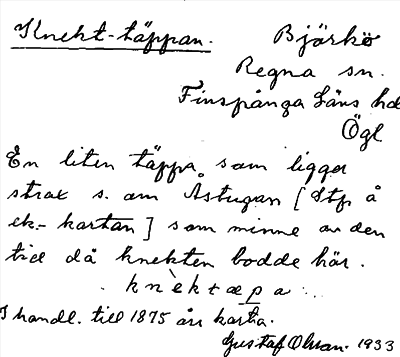 Knekt-täppan. Björkö
Regna sn.
Finspånga läns hd
Ögl
En liten täppa som ligger
strax s. om Åstugan [Stp å
ek.-kartan] som minne av den
tid då knekten bodde här.
knèktæpa
I handl. till 1875 års karta.
Gustaf Olsson. 1933